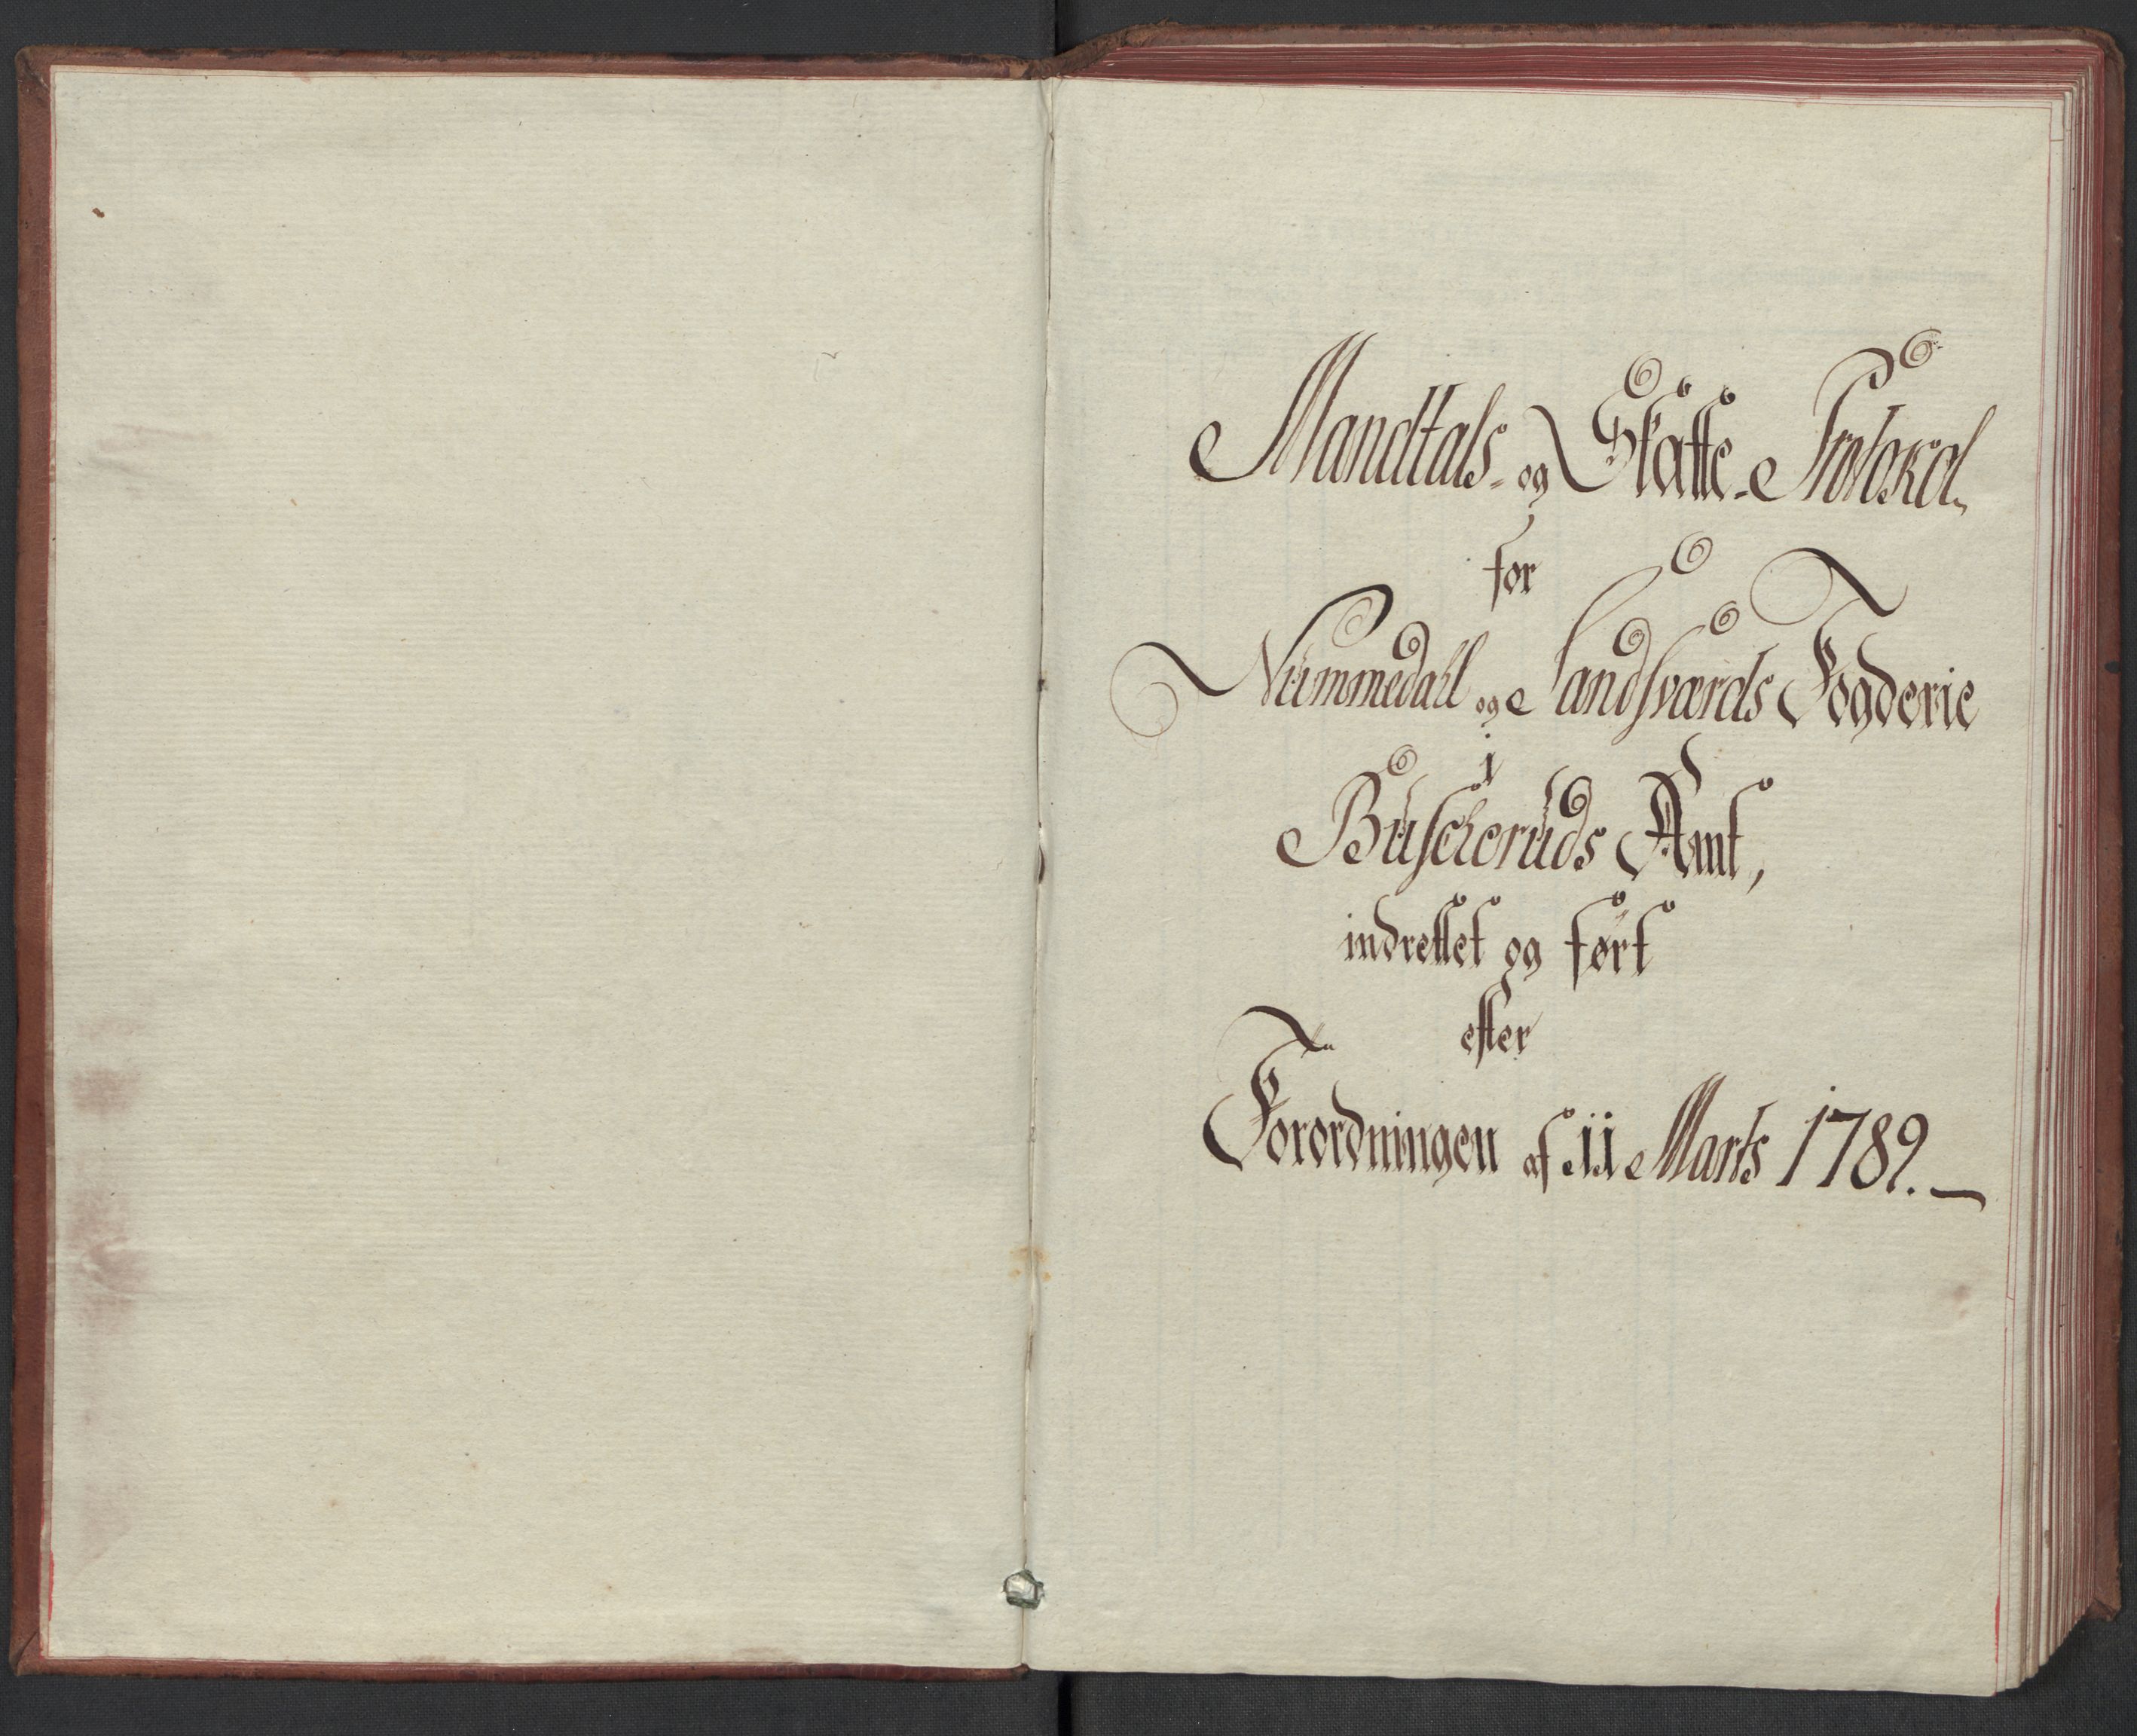 Mandtals- og Skatte-Protokol
for
Nummedahl og Sandsværds Fogderie
i
Buscheruds Amt,
indrettet og ført
efter
Forordningen af 11 Marts 1789.